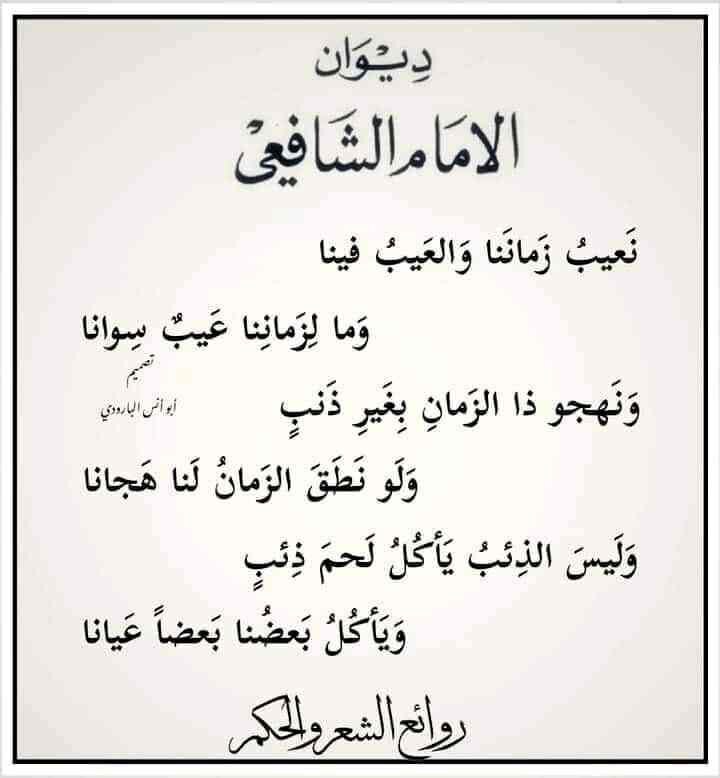 دِيْوَان
الامَام الشَافِعِيْ
نَعيبُ زَمانَنا وَالعَيبُ فينا
وَما لِزَمانِنا عَيبٌ سِوانا
تصميم
أبو أنس البارودي
وَنَهجو ذا الزَمانِ بِغَيرِ ذَنبٍ
وَلَو نَطَقَ الزَمانُ لَنا هَجانا
وَلَيسَ الذِئبُ يَأكُلُ لَحمَ ذِئبٍ
وَيَأكُلُ بَعضُنا بَعضاً عَيانا
روائع الشعر والحكم